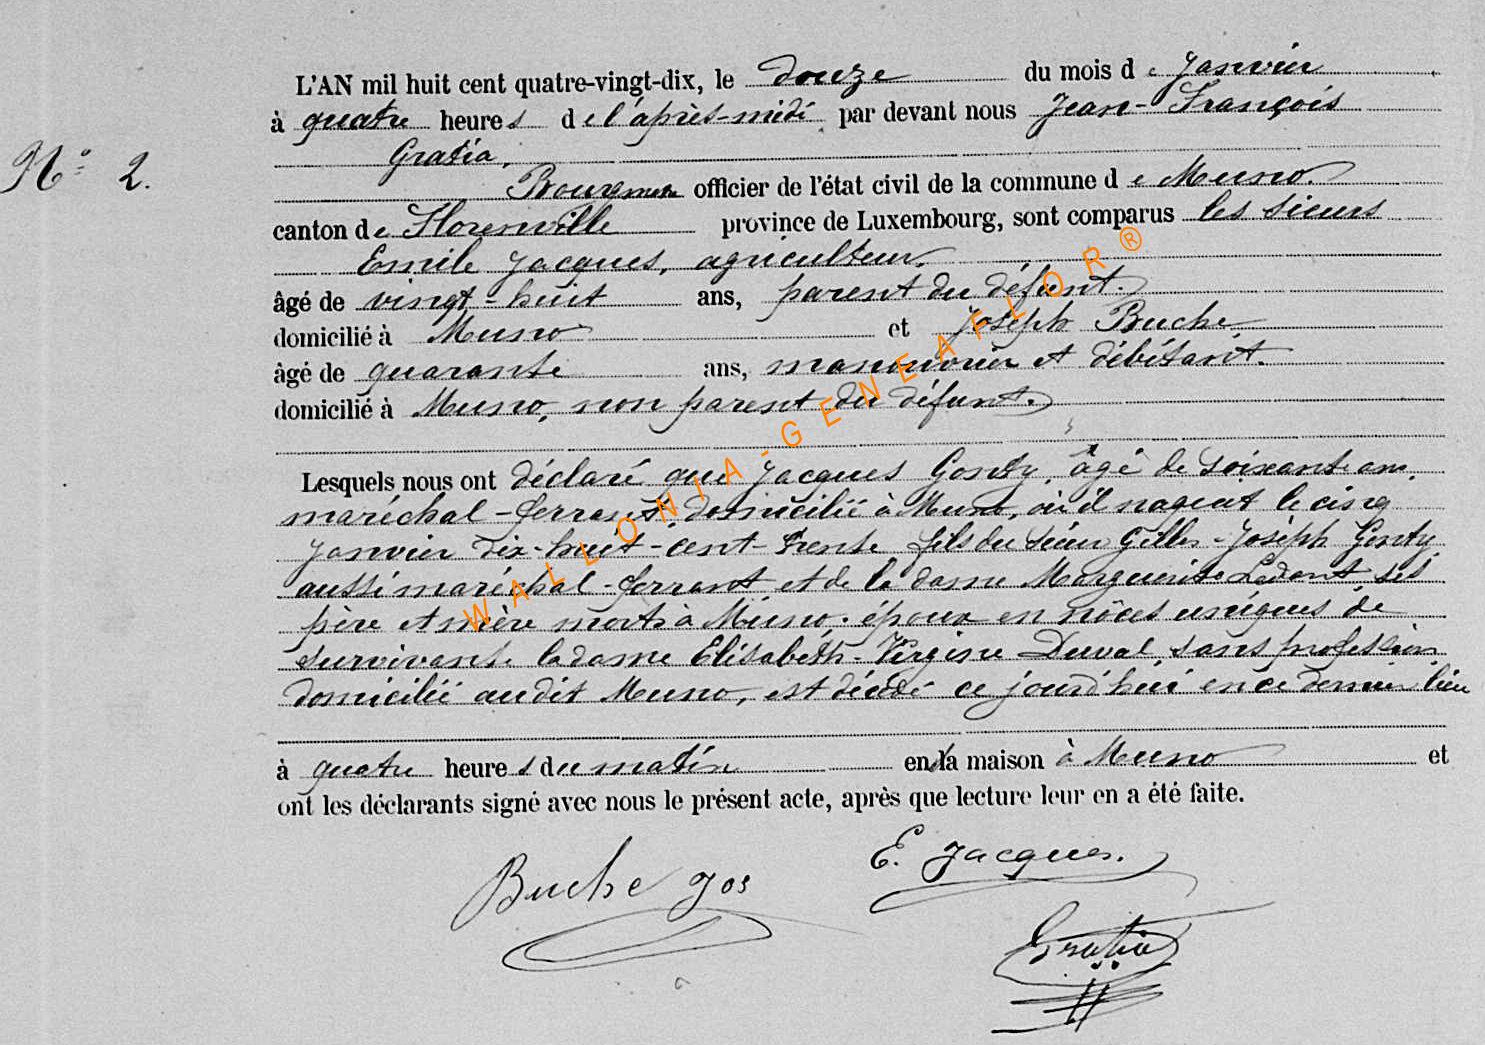 L'AN mil huit cent quatre-vingt-dix, le douze du mois de Janvier
à quatre heures de l'après-midi par devant nous Jean-François
Gratia,
N° 2.
Bourgmestre officier de l'état civil de la commune de Muno.
canton de Florenville province de Luxembourg, sont comparus les sieurs
Emile Jacques, agriculteur,
âgé de vingt-huit ans, parent du défunt.
domicilié à Muno et Joseph Buche,
âgé de quarante ans, manouvrier et débitant.
domicilié à Muno, non parent du défunt.
Lesquels nous ont déclaré que Jacques Gonty, âgé de soixante ans,
maréchal-ferrant, domicilié à Muno, où il naquit le cinq
Janvier dix-huit-cent-trente fils du sieur Gilles-Joseph Gonty,
aussi maréchal-ferrant et de la dame Marguerite Ledent ses
père et mère morts à Muno, époux en nôces uniques de
survivante la dame Elisabeth-Virginie Duval, sans profession,
domicilié audit Muno, est décédé ce jourd'hui en ce dernier lieu
à quatre heures du matin en la maison à Muno et
ont les déclarants signé avec nous le présent acte, après que lecture leur en a été faite.
E. Jacques.
Buche Jos
Gratia
WALLONIA-GENEAFLOR®